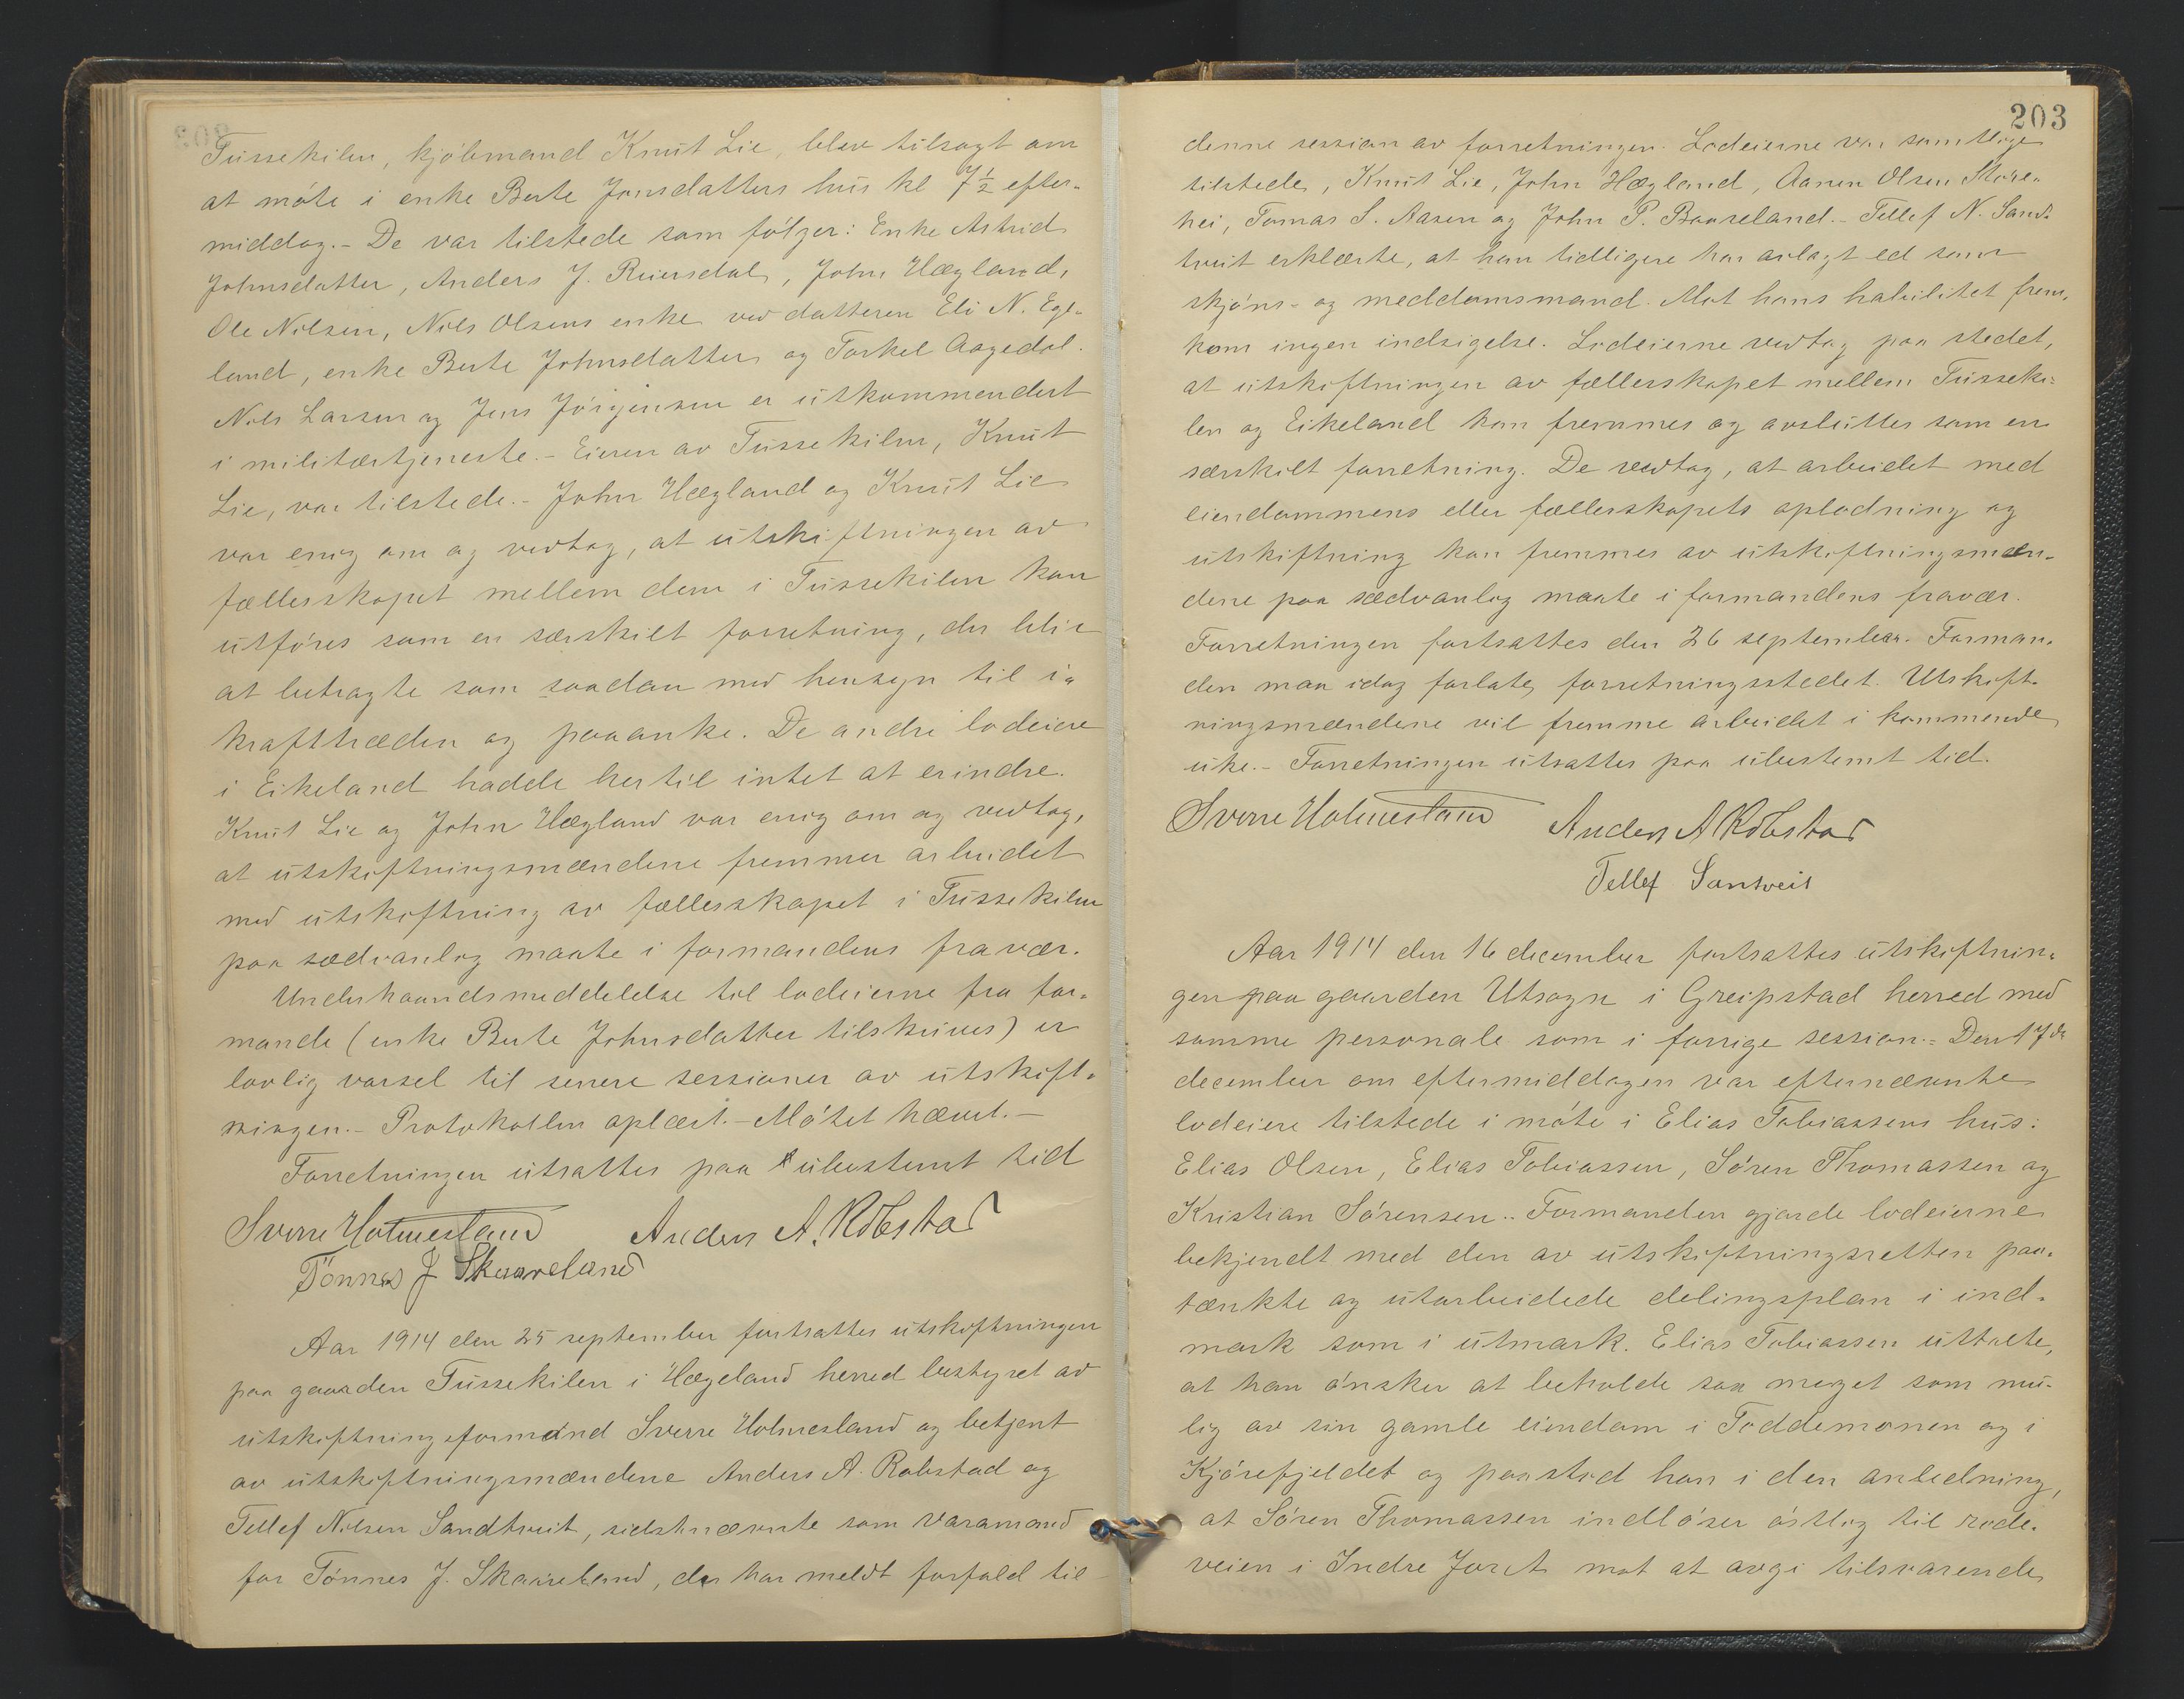 Tussekilen, kjøbmand Knut Lie, blev tilsagt om
at møte i enke Berte Jonsdatters hus kl 7½ efter-
middag.- De var tilstede som følger: Enke Astrid
Johnsdatter, Anders J. Reiersdal, John Hægland,
Ole Nilsen, Nils Olsens enke ved datteren Eli N. Ege-
land, enke Berte Johnsdatter og Torkel Aagedal.
Nils Larsen og Jens Jörgensen er utkommendert
i militærtjeneste.- Eieren av Tussekilen, Knut
Lie, var tilstede.- John Hægland og Knut Lie
var enig om og vedtog, at utskiftningen av
fællesskapet mellem dem i Tussekilen kan
utføres som en særskilt forretning, der blir
at betragte som saadan med hensyn til i-
krafttræden og paaanke. De andre lodeiere
i Eikeland hadde hertil intet at erindre.
Knut Lie og John Hægland var enig om og vedtog,
at utskiftningsmændene fremmer arbeidet
med utskiftning av fællesskapet i Tussekilen
paa sædvanlig maate i formandens fravær.
Underhaandsmeddelelse til lodeierne fra for-
mande (enke Berte Johnsdatter tilskrives) er
lovlig varsel til senere sessioner av utskift-
ningen.- Protokollen oplæst.- Møtet hævet.-
Forretningen utsattes paa ubestemt tid
Sverre Holmesland Anders A. Robstad
Tönnes J Skaareland
Aar 1914 den 25 september fortsattes utskiftningen
paa gaarden Tussekilen i Hægeland herred bestyret av
utskiftningsformand Sverre Holmesland og betjent
av utskiftningsmændene Anders A. Robstad og
Tellef Nilsen Sandtveit, sidstnævnte som varamand
for Tönnes J. Skaareland, der har meldt forfald til
203
denne session av forretningen. Lodeierne var samtlige
tilstede, Knut Lie, John Hægland, Aanen Olsen Store-
hei, Tomas S. Aasen og John P. Baaseland.- Tellef N. Sand-
tveit erklærte, at han tidligere har avlagt ed som
skjøns- og meddomsmand. Mot hans habilitet frem-
kom ingen indsigelse. Lodeierne vedtog paa stedet,
at utskiftningen av fællesskapet mellem Tusseki-
len og Eikeland kan fremmes og avsluttes som en
særskilt forretning. De vedtog, at arbeidet med
eiendommens eller fællesskapets oplodning og
utskiftning kan fremmes av utskiftningsmæn-
dene paa sædvanlig maate i formandens fravær.
Forretningen fortsattes den 26 september. Forman-
den maa idag forlate forretningsstedet. Utskift-
ningsmændene vil fremme arbeidet i kommende
uke.- Forretningen utsattes paa ubestemt tid.
Sverre Holmesland Anders A Robstad
Tellef Santveit
Aar 1914 den 16 december fortsattes utskiftnin-
gen paa gaarden Utsogn i Greipstad herred med
samme personale som i forrige session.- Den 17de
december om eftermiddagen var efternævnte
lodeiere tilstede i møte i Elias Tobiassens hus:
Elias Olsen, Elias Tobiassen, Sören Thomassen og
Kristian Sörensen.- Formanden gjorde lodeierne
bekjendt med den av utskiftningsretten paa-
tænkte og utarbeidede delingsplan i ind-
mark som i utmark. Elias Tobiassen uttalte,
at han ønsker at beholde saa meget som mu-
lig av sin gamle eiendom i Toddemonen og i
Kjósefjeldet og paastod han i den anledning,
at Sören Thomassen indløser østlig til rode-
veien i Indre Jordet mot at avgi tilsvarende